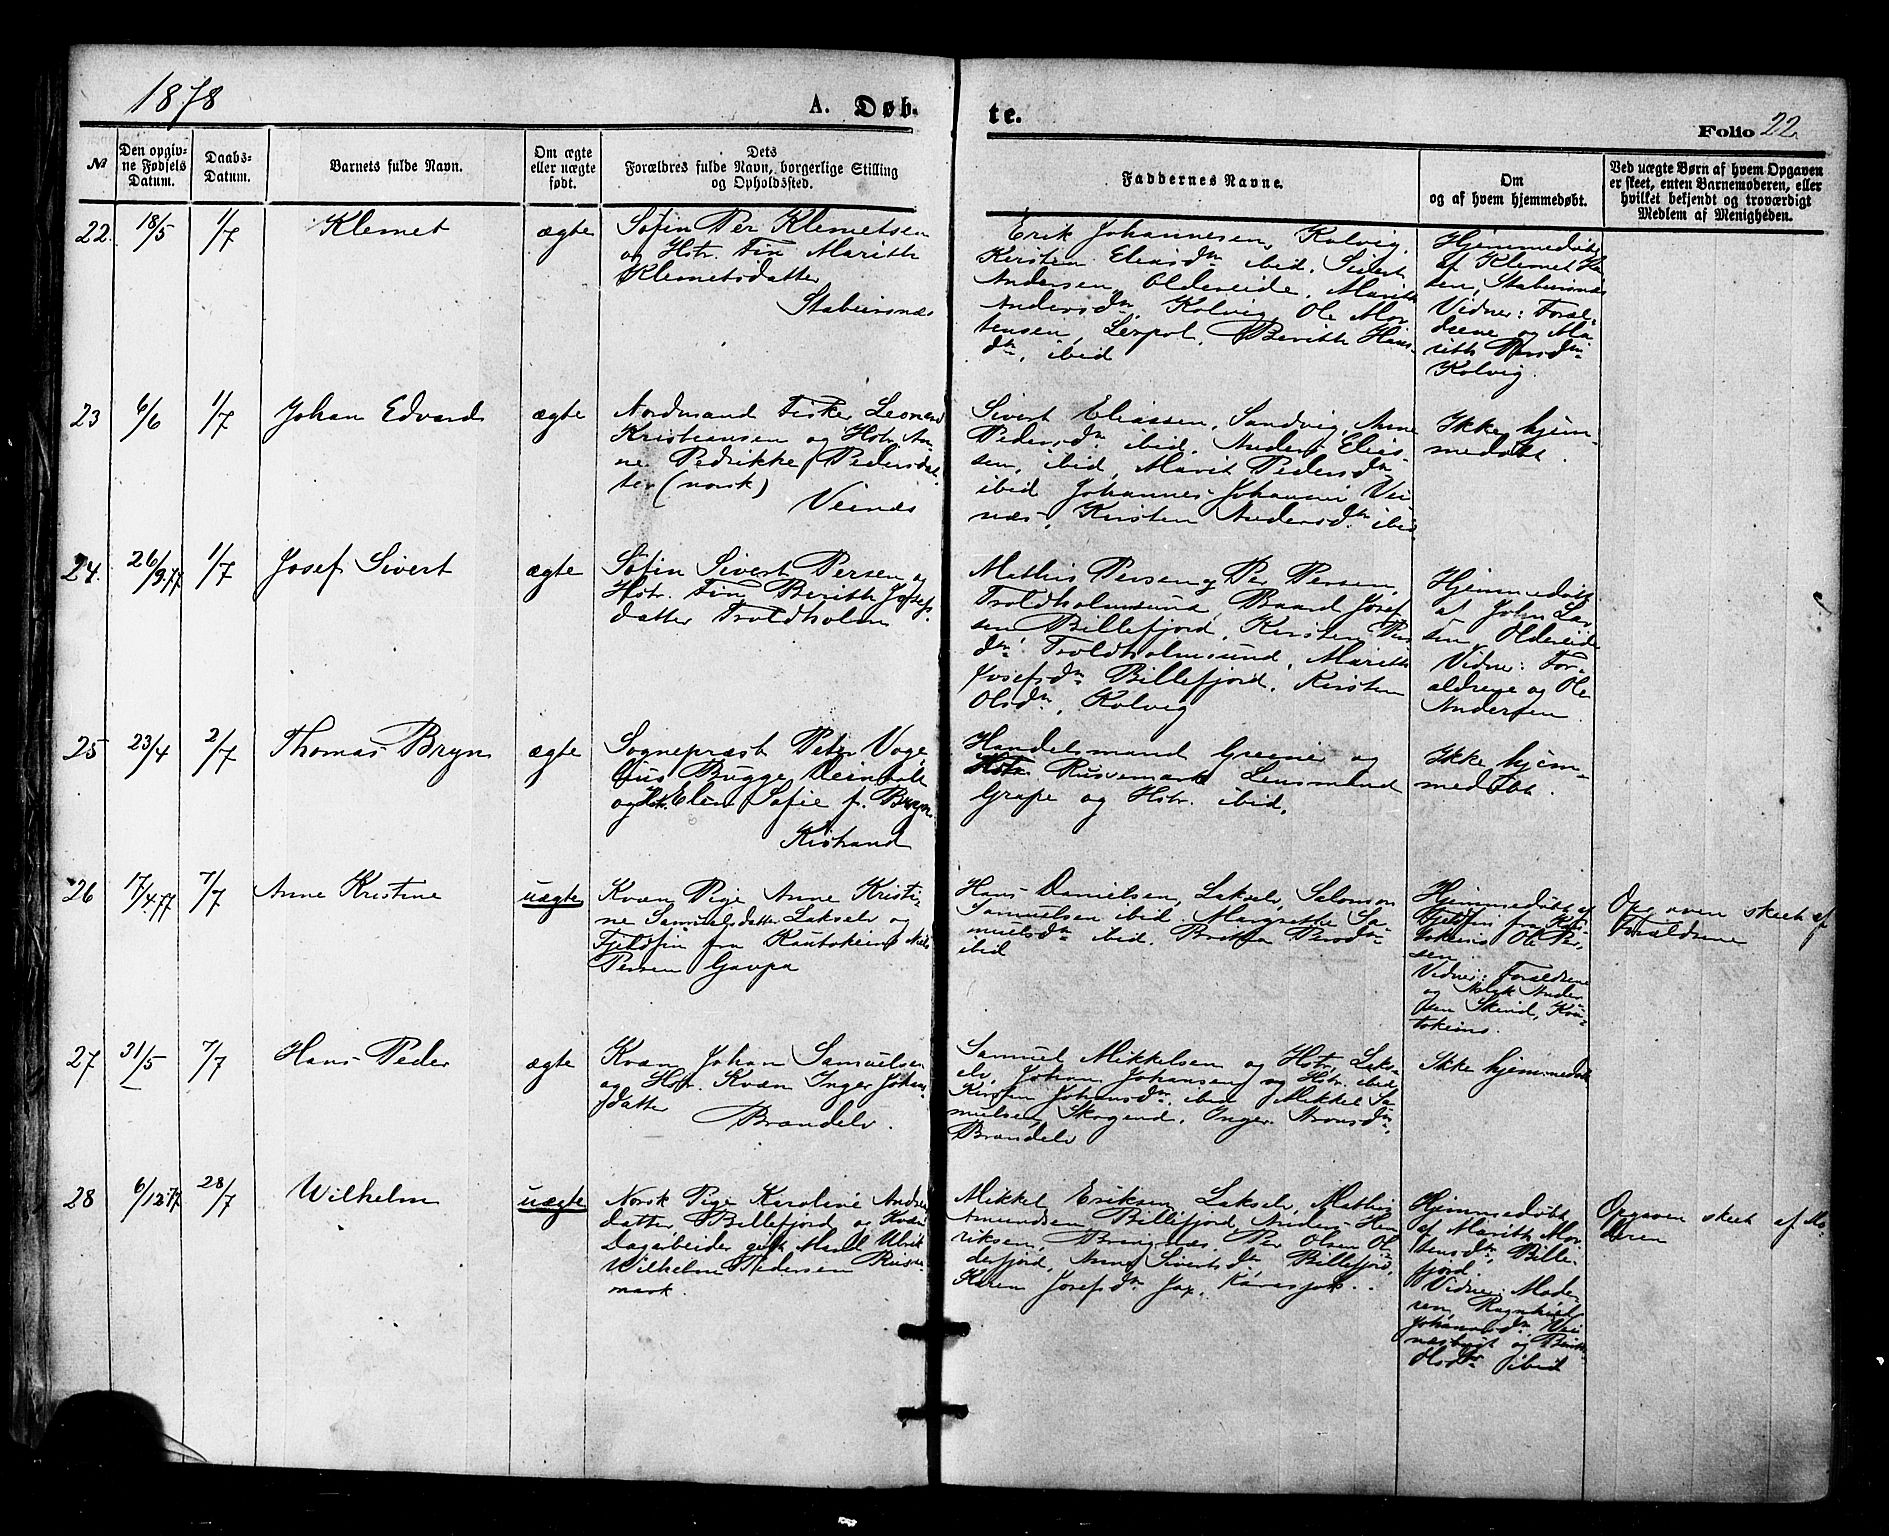 1878
A. Døb-
te.
Folio 22.
No
Den opgiv-
ne Fødsels
Datum.
Daabs-
Datum.
Barnets fulde Navn.
Om ægte
eller uægte
født.
Dets
Forældres fulde Navn, borgerlige Stilling
og Opholdssted.
Faddernes Navne.
Om
og af hvem hjemmedøbt.
Ved uægte Børn af hvem Opgaven
er skeet, enten Barnemoderen, eller
hvilket bekjendt og troværdigt
Medlem af Menigheden.
22.
18/5
1/7
Klemet
ægte
Søfin Per Klemetsen
og Hstr. Fin Marith
Klemetsdatter
Stabursnæs
Erik Johannesen, Kolvig,
Kirsten Eliasdtr ibid. Sivert
Andersen, Oldereide, Marith
Andersdtr, Kolvig, Ole Mor-
tensen, Leirpol, Berith Hans-
dtr, ibid
Hjemmedøbt
af Klemet Han-
sen, Stabursnæs
Vidner: Foræl-
drene og Ma-
rith Persdtr
Kolvig.
23
6/6
1/7
Johan Edvard
ægte
Nordmand Fisker Leonard
Kristiansen og Hstr. An-
ne Pedrikke Pedersdat-
ter (norsk)
Veinæs
Sivert Eliassen, Sandvig, Anne
Pedersdtr ibid, Anders Elias-
sen, ibid, Marit Pedersdtr
ibid Johannes Johannes Vei-
næs, Kirsten Andersdtr ibid
Ikke hjem-
medøbt.
24.
26/9.77
1/7
Josef Sivert
ægte
Søfin Sivert Persen og
Hstr. Fin Berith Josefs-
datter Troldholm
Mathis Persen og Per Persen,
Troldholmsund, Baard Josef-
sen Billefjord, Kirsten Per-
dtr Troldholmsund, Marith
Josefsdtr Billefjord, Kirsten
Olsdtr, Kolvig
Hjemmedøbt
af John Lar-
sen, Oldereide
Vidner: For-
ældrene og Ole
Andersen
25
23/4
2/7
Thomas Bryn
ægte
Sogneprest Peter Voge-
lius Bugge Deinboll
og Hstr. Elen Sofie f. Bryn.
Kistrand
Handelsmand Greiner og
Hstr. Russemark Lensmand
Grape og Hstr. ibid.
Ikke hjem-
medøbt.
26
17/4.77
7/7
Anne Kristine
uægte
Kvæn Pige Anne Kristi-
ne Samuelsdatter Lakselv og
Fjeldfin fra Kautokeino Nils
Persen Gavpa
Hans Danielsen, Lakselv, Salomon
Samuelsen ibid. Margrethe Sa-
muelsdtr ibid. Britha Persdtr
ibid
Hjemmedøbt af
Fjeldfin fra Kau-
tokeino Ole Per-
sen.
Vidner: Forældrene
og Aslak Ander-
sen Skind, Kau-
tokeino.
Opgaven skeet af
Forældrene
27
31/5
7/7
Hans Peder
ægte
Kvæn Johan Samuelsen
og Hstr. Kvæn Inger Johans-
datter
Brændelv.
Samuel Mikkelsen og Hstr, Laks-
elv, Johan Johansen og Hstr. ibid
Kirsten Johansdtr, ibid Mikkel Sa-
muelsen Skogend, Inger Aronsdtr,
Brændelv
Ikke hjemmedøbt
28
6/12 77
28/7
Wilhelm
uægte
Norsk Pige Karoline Andreas-
datter Billefjord og Kvæn
Dagarbeider gift Mand Ulrik
Wilhelm Pedersen Russe-
mark.
Mikkel Eriksen Lakselv, Mathis
Amundsen Billefjord, Anders Hen-
riksen, Per Olsen Ol-
derfjord, Anne Sivertsdtr Billefjord,
Karen Josefsdtr Jax, Karasjok.
Hjemmedøbt
af Marith Mor-
tensdtr, Bille-
fjord
Vidner: Mode-
ren, Ragnhild
Johannesdtr Vei-
næsbugt og Berith
Olsdtr ibid
Opgaven skeet af Mo-
deren